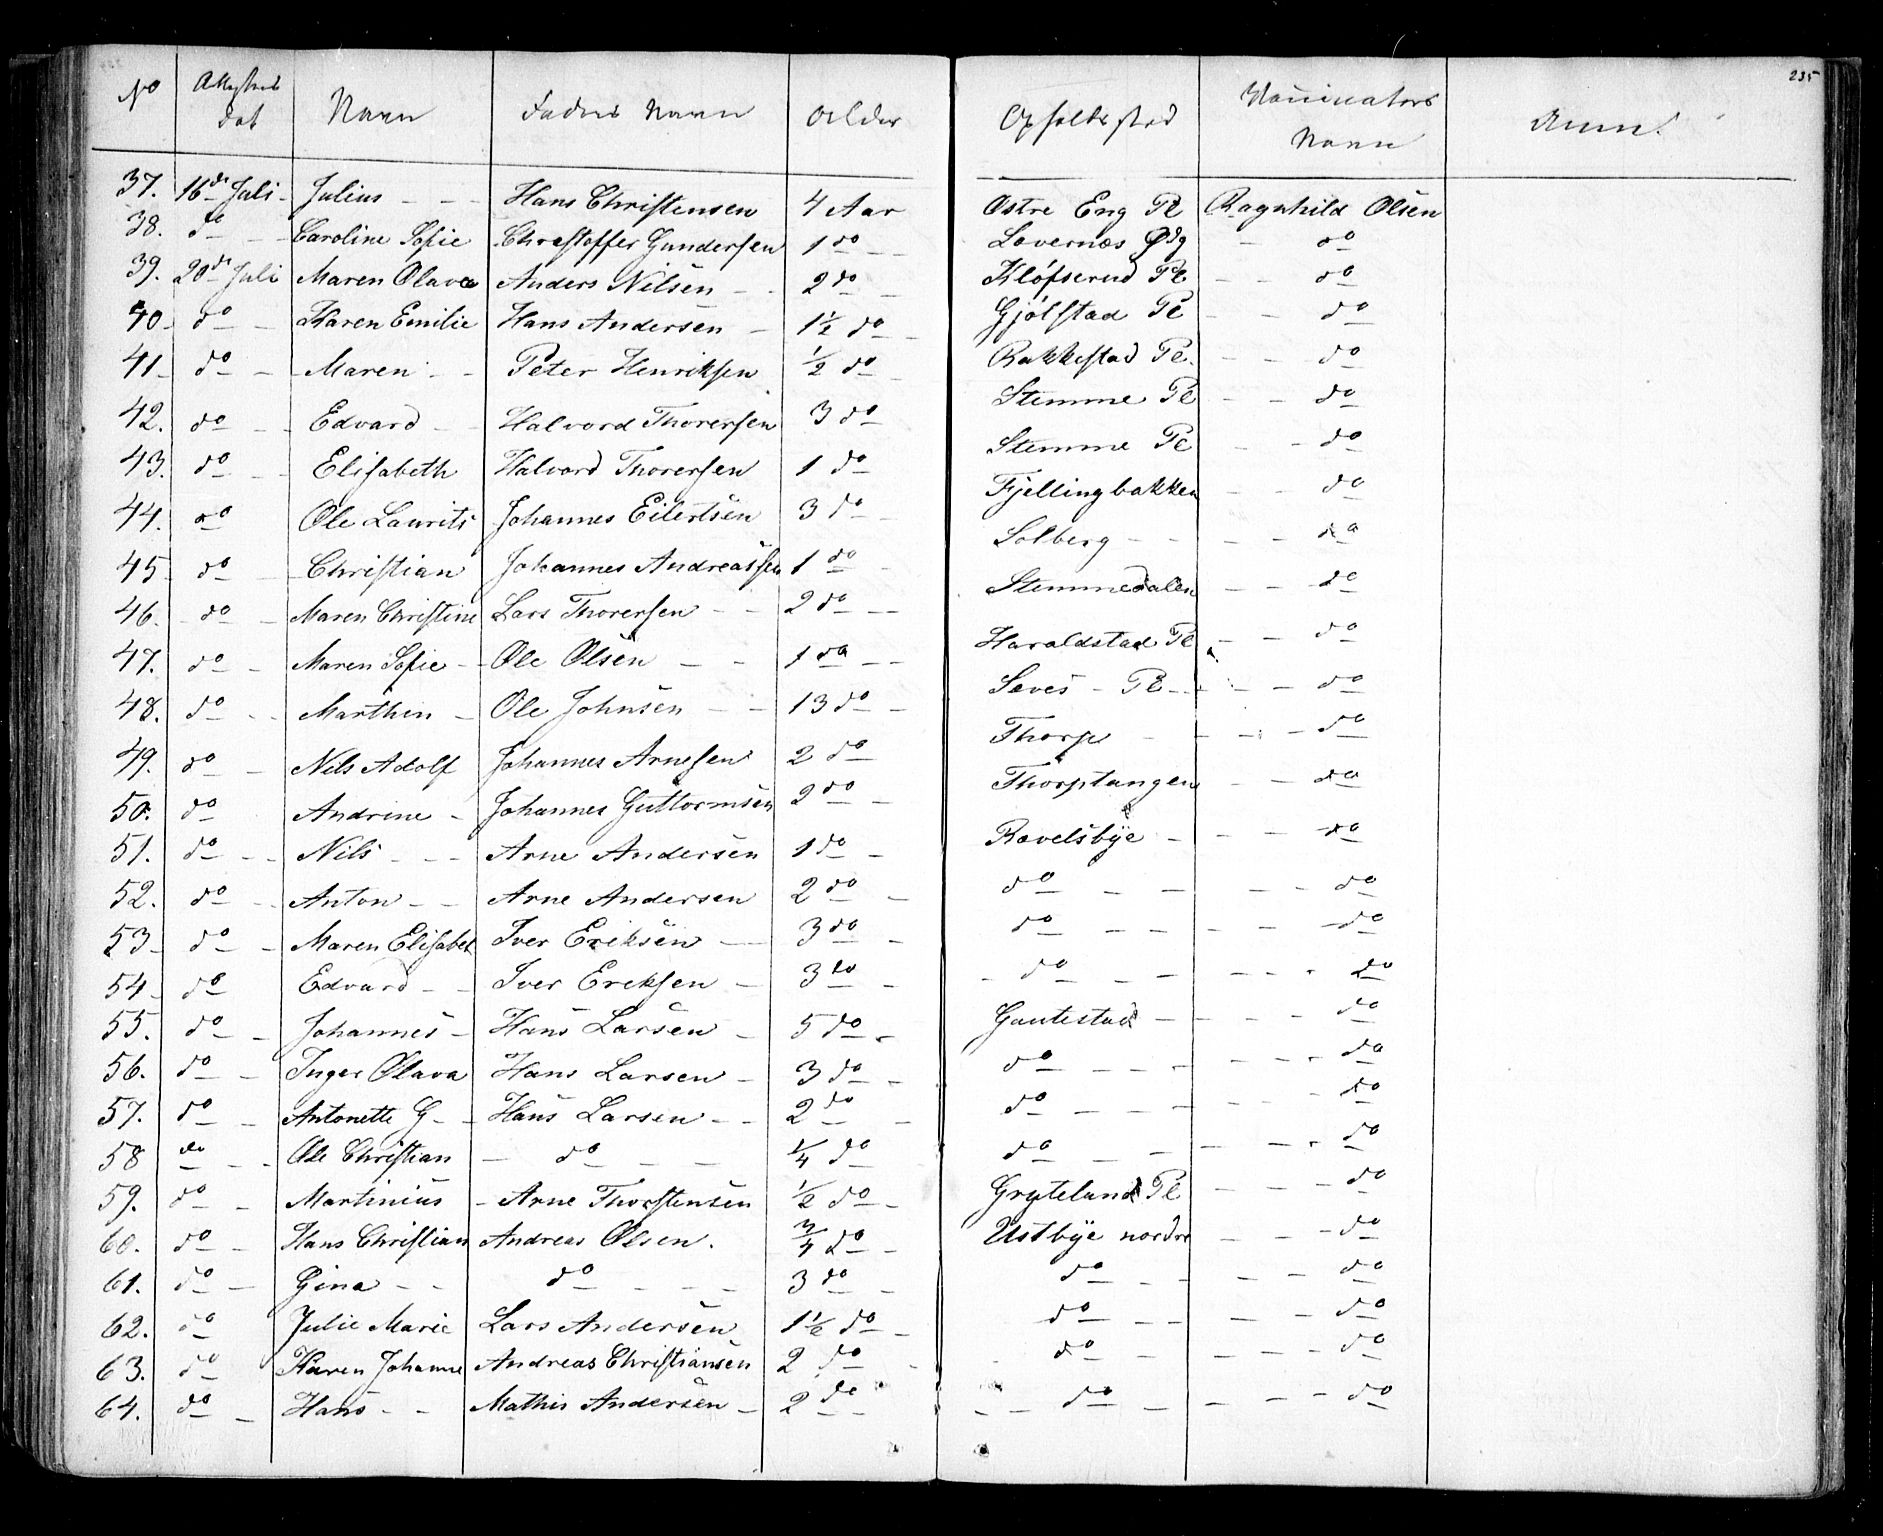 235
No | Attestens Dat | Navn | Faders Navn | Alder | Opholdssted | Vaccinators Navn | Anm.
37. | 16de Juli | Julius | Hans Christensen | 4 Aar | Østre Eng Pl | Ragnhild Olsen
38. | do | Caroline Sofie | Christoffer Gundersen | 1 do | Lovernæs | do
39. | 20de Juli | Maren Olava | Anders Nilsen | 2 do | Kløfserud Pl | do
40 | do | Karen Emilie | Hans Andersen | 1½ do | Gjølstad Pl | do
41 | do | Maren | Peter Henriksen | ½ do | Bakkestad Pl. | do
42. | do | Edvard | Halvord Thorersen | 3 do | Stemme Pl | do
43. | do | Elisabeth | Halvord Thorersen | 1 do | Stemme Pl | do
44. | do | Ole Laurits | Johannes Eilertsen | 3 do | Fjellingbakken | do
45 | do | Christian | Johannes Andreassen | 1 do | Solberg | do
46. | do | Maren Christine | Lars Thorersen | 2 do | Stemmedalen | do
47. | do | Maren Sofie | Ole Olsen | 1 do | Haraldstad Pl | do
48. | do | Marthin | Ole Johnsen | 13 do | Sæves Pl | do
49. | do | Nils Adolf | Johannes Arnesen | 2 do | Thorp | do
50. | do | Andrine | Johannes Guttormsen | 2 do | Thorptangen | do
51. | do | Nils | Arne Andersen | 1 do | Ravelsbye | do
52. | do | Anton | Arne Andersen | 2 do | do | do
53 | do | Maren Elisabet | Iver Eriksen | 3 do | do | do
54 | do | Edvard | Iver Ereksen | 3 do | do | do
55. | do | Johannes | Hans Larsen | 5 do | Gautestad | do
56. | do | Inger Olava | Hans Larsen | 3 do | do | do
57. | do | Antonette G | Hans Larsen | 2 do | do | do
58 | do | Ole Christian | do | ¼ do | do | do
59. | do | Martinius | Arne Thorstensen | ½ do | Gryteland Pl | do
60. | do | Hans Christian | Andreas Olsen. | ¾ do | Ustbye nordre | do
61. | do | Gina | do | 3 do | do | do
62. | do | Julie Marie | Lars Andersen | 1½ do | do | do
63. | do | Karen Johanne | Andreas Christiansen | 2 do | do | do
64. | do | Hans | Mathis Andersen | 2 do | do | do